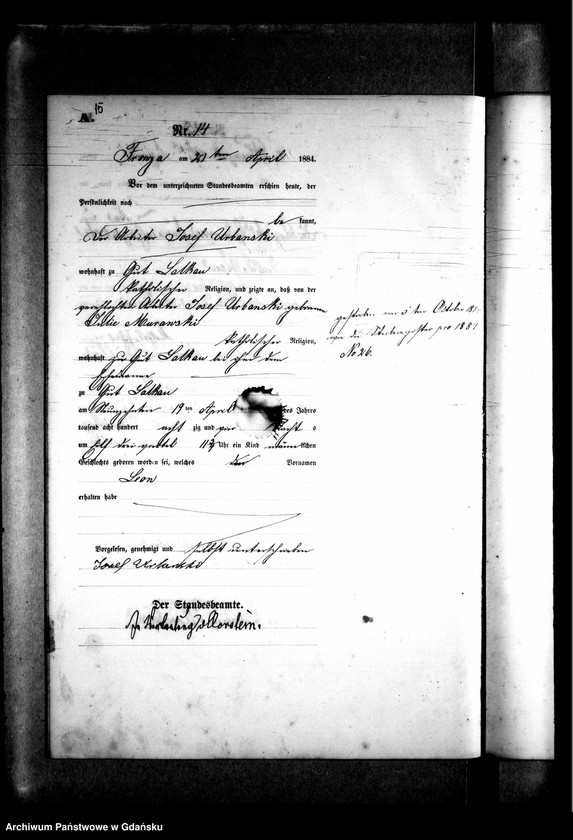 A. 15
Nr. 14
Fronza am 21 ten April 1884.
Vor dem unterzeichneten Standesbeamten erschien heute, der
Persönlichkeit nach
be kannt,
Der Arbeiter Josef Urbanski
wohnhaft zu Gut Salkau
katholischer Religion, und zeigte an, daß von der
verehelichten Arbeiter Josef Urbanski geborene
Julie Muranski
katholischer Religion,
wohnhaft zu Gut Salkau bei dem
Ehemanne
zu Gut Salkau
am Neunzehnten 19 ten April des Jahres
tausend acht hundert acht zig und vier Nacht
um elf drei viertel Uhr ein Kind männ lichen
Geschlechts geboren worden sei, welches den Vornamen
Leon
erhalten habe
Vorgelesen, genehmigt und selbst unterschrieben
Josef Urbanski
Der Standesbeamte.
gestorben am 5 ten October
Sterberegister pro 1881
No 26.
Archiwum Państwowe w Gdańsku